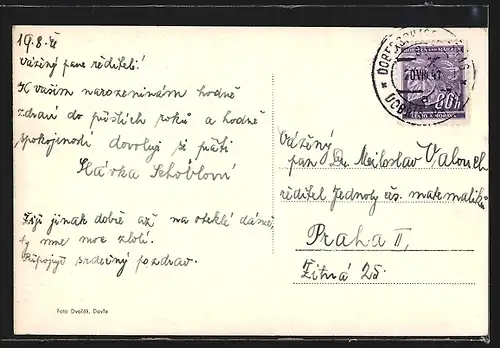 19.8.41
Vážený pane řediteli!
K vašim narozeninám hodně
zdraví do příštích roků a hodně
spokojenosti dovoluji si přáti
Slávka Schöblová
Žiji jinak dobře až na oteklé dásně,
ty mne moc zlobí.
Připojuji srdečný pozdrav.
Foto Dvořák, Davle
Vážený
pan Dr. Miloslav Valouch
ředitel Jednoty čs. matematiků
Praha II,
Žitná 25.
VIII 41
80h
ČECHY A MORAVA